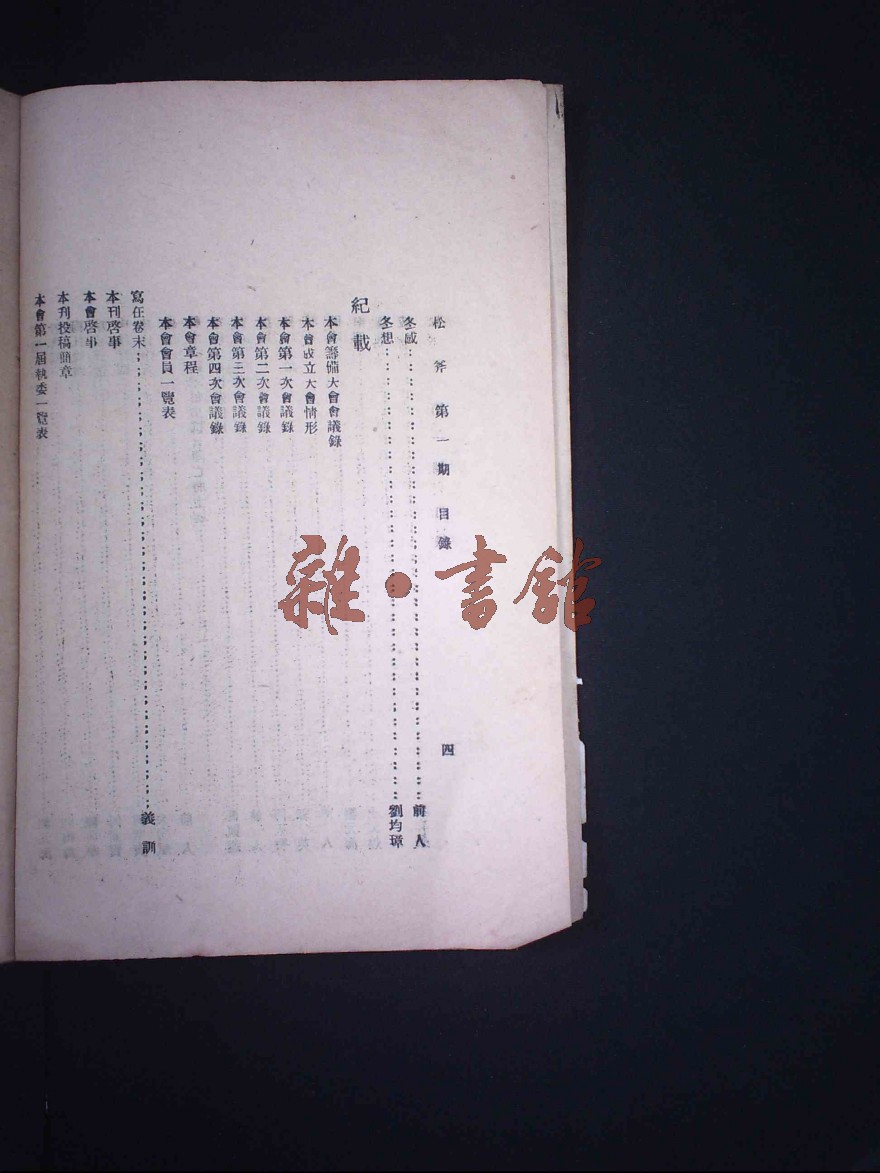 松斧第一期目錄 四
冬感 前人
冬想 劉均璋
紀載
本會籌備大會會議錄
本會成立大會情形
本會第一次會議錄
本會第二次會議錄
本會第三次會議錄
本會第四次會議錄
本會章程
本會會員一覽表
寫在卷末 義訓
本刊啓事
本會啓事
本刊投稿簡章
本會第一屆執委一覽表
雜·書館